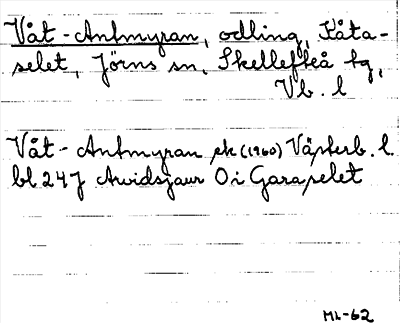 Våt-Antmyran, odling, Kåta-
selet, Jörns sn. Skellefteå tg,
Vb. l
Våt-Antmyran ek (1960) Västerb. l.
bl 24 J Arvidsjaur O i Garaselet
ML-62